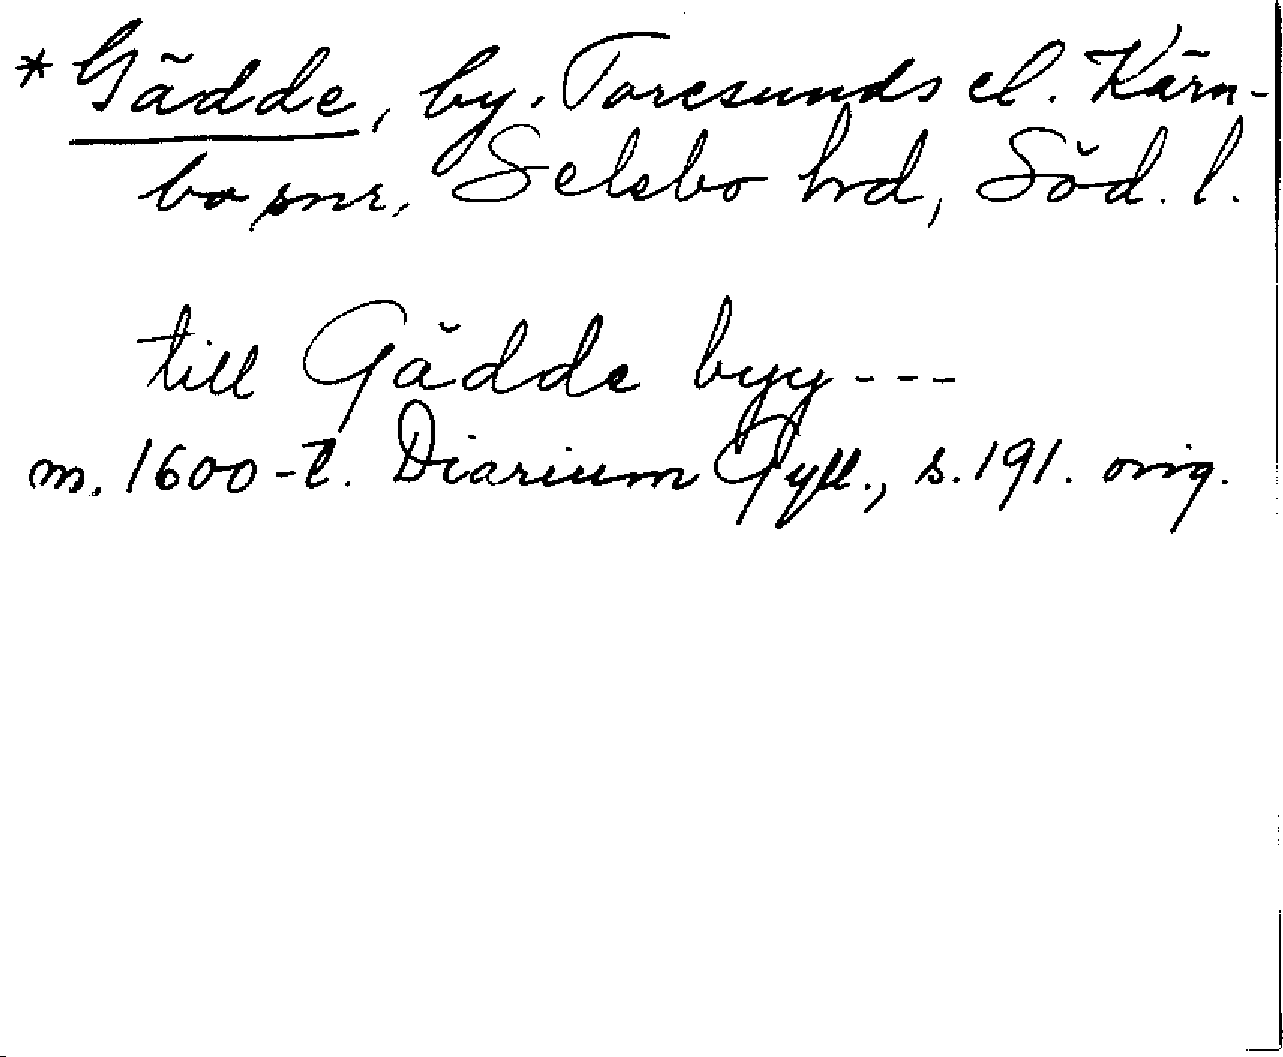 *Gädde, by. Toresunds el. Kärn-
bo snr, Selebo hrd, Söd. l.
till Gädde byy---
m. 1600-t. Diarium Gyll., s. 191. orig.